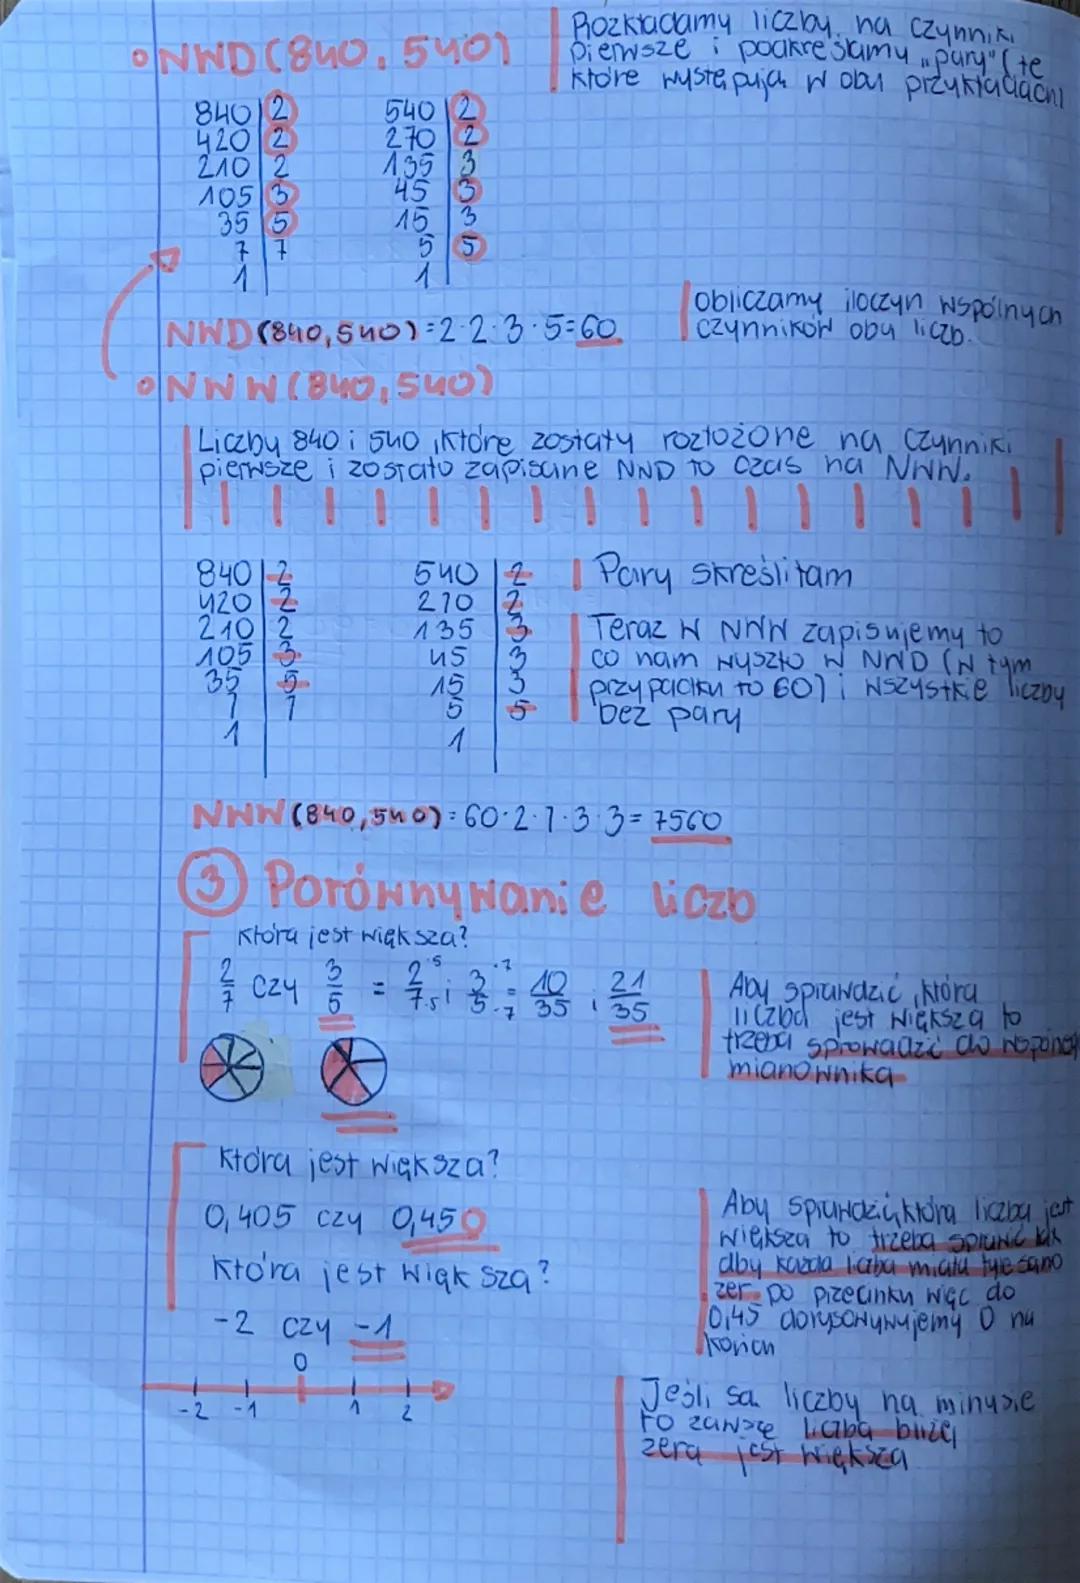 NWD(840,540)
Rozkładamy liczby na czynniki
pierwsze i podkreślamy „pary" (te
które występują w obu przykładach)
840 | 2
420 | 2
210 | 2
105 | 3
35 | 5
7 | 7
1
540 | 2
270 | 2
135 | 3
45 | 3
15 | 3
5 | 5
1
NWD(840,540)=2·2·3·5=60
obliczamy iloczyn wspólnych
czynników obu liczb.
NWW(840,540)
Liczby 840 i 540, które zostały rozłożone na czynniki
pierwsze i zostało zapisane NWD to czas na NWW.
840 | 2
420 | 2
210 | 2
105 | 3
35 | 5
7 | 7
1
540 | 2
270 | 2
135 | 3
45 | 3
15 | 3
5 | 5
1
Pary skreśliłam
Teraz w NWW zapisujemy to
co nam wyszło w NWD (w tym
przypadku to 60) i wszystkie liczby
bez pary
NWW(840,540)=60·2·7·3·3=7560
3 Porównywanie liczb
Która jest większa?
2/7 czy 3/5 = 2·5/7·5 i 3·7/5·7 = 10/35 i 21/35
Aby sprawdzić, która
liczba jest większa to
trzeba sprowadzić do wspónego
mianownika
Która jest większa?
0,405 czy 0,450
Aby sprawdzić, która liczba jest
większa to trzeba
aby każda liczba miała tyle samo
zer po przecinku więc do
0,45 dorysowywujemy 0 na
końcu
Która jest większa?
-2 czy -1
0
-2 -1 1 2
Jeśli są liczby na minusie
to zawsze liczba bliżej
zera jest większa